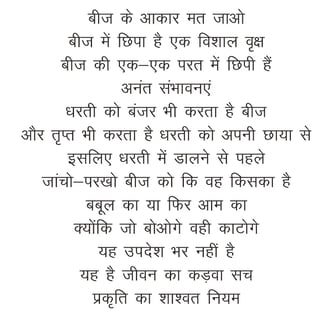 बीज के आकार मत जाओ
बीज में छिपा है एक विशाल वृक्ष
बीज की एक–एक परत में छिपी हैं
अनंत संभावनएं
धरती को बंजर भी करता है बीज
और तृप्त भी करता है धरती को अपनी छाया से
इसलिए धरती में डालने से पहले
जांचो–परखो बीज को कि वह किसका है
बबूल का या फिर आम का
क्योंकि जो बोओगे वही काटोगे
यह उपदेश भर नहीं है
यह है जीवन का कड़वा सच
प्रकृति का शाश्वत नियम